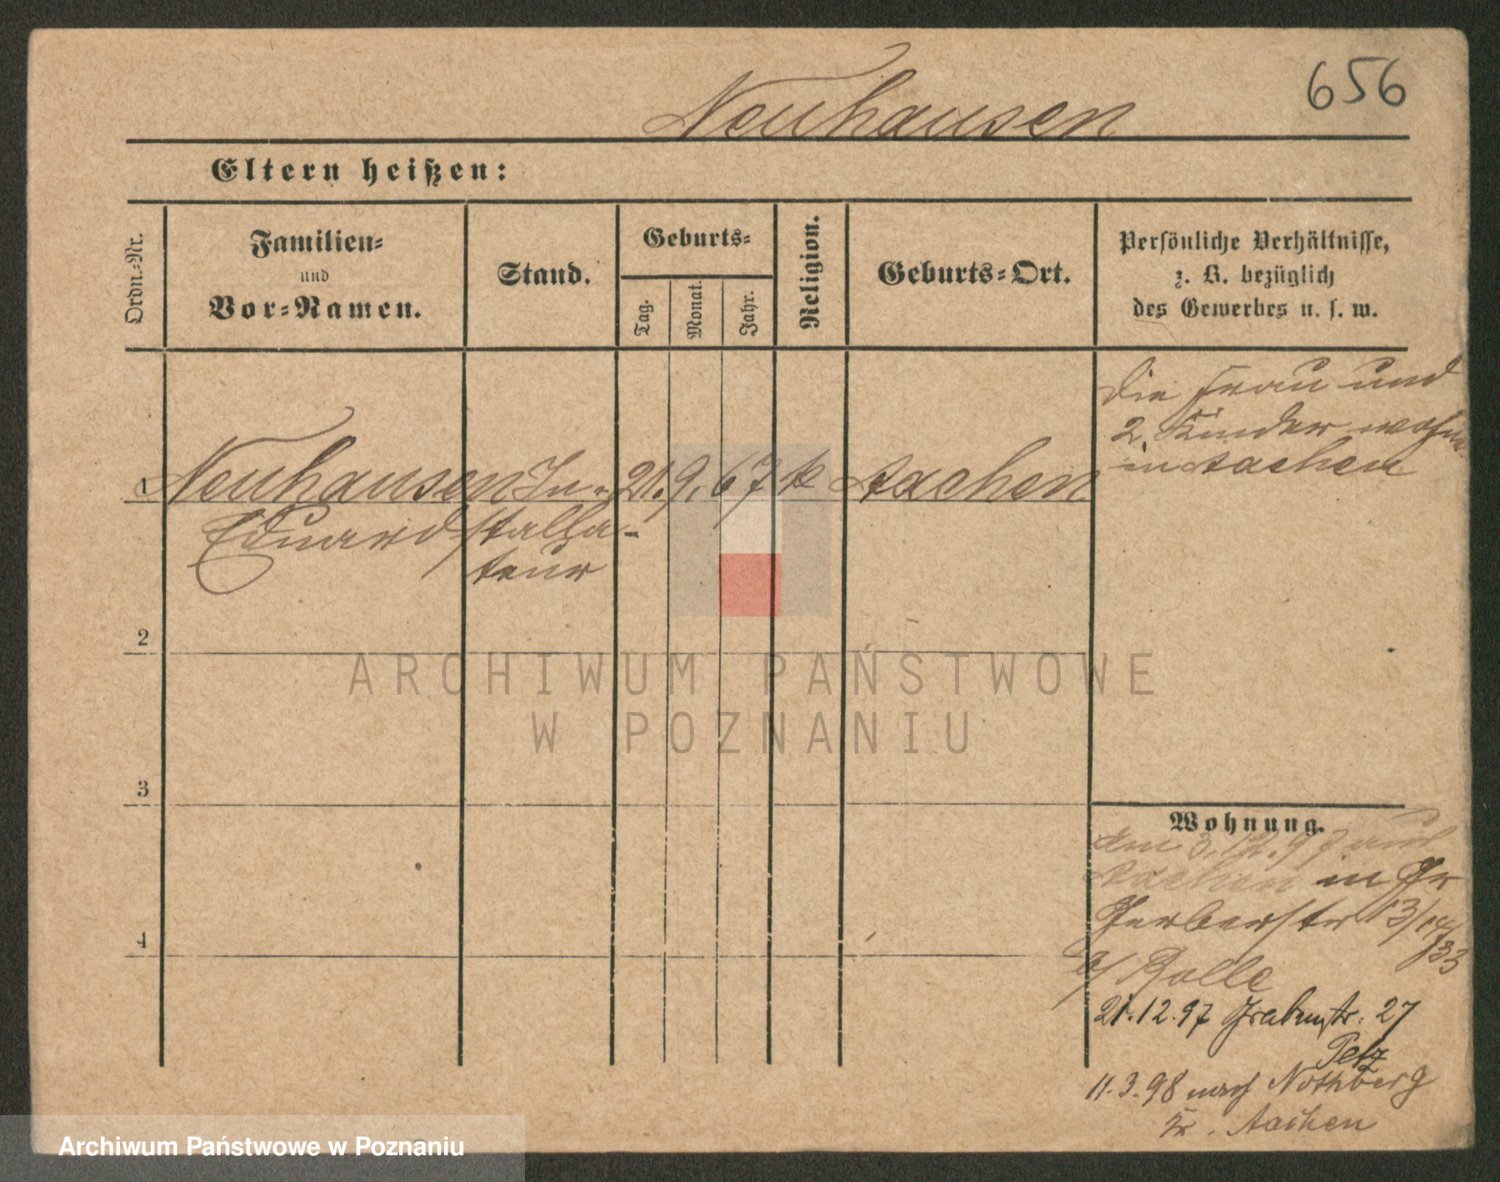 656
Neuhausen
Eltern heißen:
Ordn.-Nr.
Familien-
und
Vor-Namen.
Stand.
Geburts-
Tag.
Monat.
Jahr.
Religion.
Geburts-Ort.
Persönliche Verhältnisse,
z. B. bezüglich
des Gewerbes u. s. w.
die Frau und
2 Kinder wohn
in Aachen
1 Neuhausen In- 21. 9. 67 k Aachen
Eduard stalla-
teur
2
3
4
Wohnung.
am 3.12.97 aus
Aachen in
Gerberstr 13/14
b/ Rolle
21.12.97 Grabenstr. 27
Petz
11.3.98 nach Nothberg
Kr. Aachen
ARCHIWUM PAŃSTWOWE
W POZNANIU
Archiwum Państwowe w Poznaniu